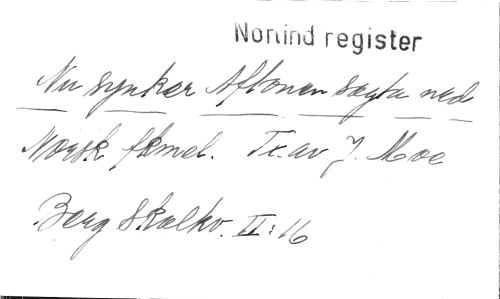 Norrind register
Nu synker Aftonen sagta ned
Norsk fkmel. Tr. av J. Moe
Berg Skolkv. II:16